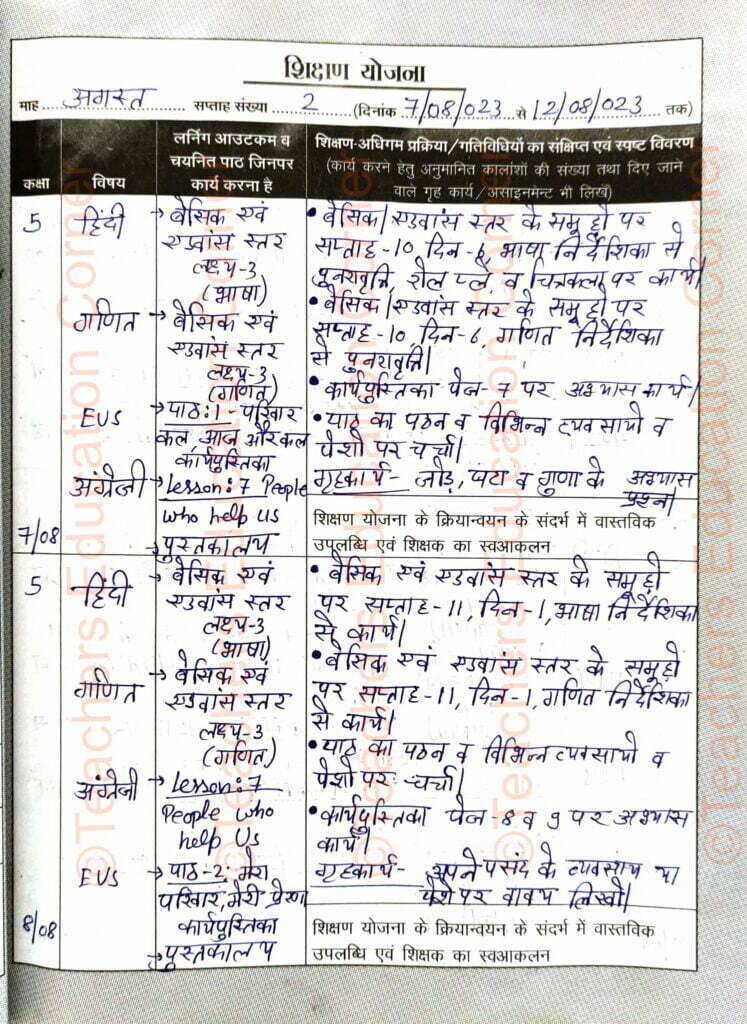 शिक्षण योजना
माह अगस्त सप्ताह संख्या 2 (दिनांक 7/08/023 से 12/08/023 तक)
कक्षा विषय लर्निंग आउटकम व चयनित पाठ जिनपर कार्य करना है शिक्षण-अधिगम प्रक्रिया/गतिविधियों का संक्षिप्त एवं स्पष्ट विवरण
(कार्य करने हेतु अनुमानित कालांशों की संख्या तथा दिए जाने
वाले गृह कार्य/असाइनमेंट भी लिखें)
5 हिंदी → बैसिक एवं • बैसिक/एडवांस स्तर के समूहों पर
एडवांस स्तर सप्ताह-10, दिन-6, भाषा निर्देशिका से
लक्ष्य-3 पुनरावृत्ति, रोल प्ले, व चित्रकला पर कार्य।
(भाषा) • बैसिक/एडवांस स्तर के समूहों पर
गणित → बैसिक एवं सप्ताह-10, दिन-6, गणित निर्देशिका
एडवांस स्तर से पुनरावृत्ति।
लक्ष्य-3
(गणित) • कार्यपुस्तिका पेज-7 पर अभ्यास कार्य।
EUS → पाठ:1- परिवार • पाठ का पठन व विभिन्न व्यवसायो व
कल, आज और कल पेशो पर चर्चा।
कार्यपुस्तिका
अंग्रेजी → Lesson:7 People गृहकार्य- जोड़, घटा व गुणा के अभ्यास
प्रश्न।
who help us शिक्षण योजना के क्रियान्वयन के संदर्भ में वास्तविक
7/08 → पुस्तकालय उपलब्धि एवं शिक्षक का स्वआकलन
5 हिंदी → बैसिक एवं • बैसिक एवं एडवांस स्तर के समूहो
एडवांस स्तर पर सप्ताह-11, दिन-1, भाषा निर्देशिका
लक्ष्य-3 से कार्य।
(भाषा)
गणित → बैसिक एवं • बैसिक एवं एडवांस स्तर के समूहो
एडवांस स्तर पर सप्ताह-11, दिन-1, गणित निर्देशिका
लक्ष्य-3 से कार्य।
(गणित) • पाठ का पठन व विभिन्न व्यवसायो व
अंग्रेजी → Lesson:7 पेशो पर चर्चा।
People who • कार्यपुस्तिका पेज-8 व 9 पर अभ्यास
help Us कार्य।
EUS → पाठ-2: मेरा गृहकार्य- अपने पसंद के व्यवसाय या
परिवार, मेरी प्रेरणा पेशे पर वाक्य लिखो।
कार्यपुस्तिका शिक्षण योजना के क्रियान्वयन के संदर्भ में वास्तविक
8/08 → पुस्तकालय उपलब्धि एवं शिक्षक का स्वआकलन
©Teachers Education Corner
©Teachers Education Corner
©Teachers Education Corner
©Teachers Education Corner
©Teachers Education Corner